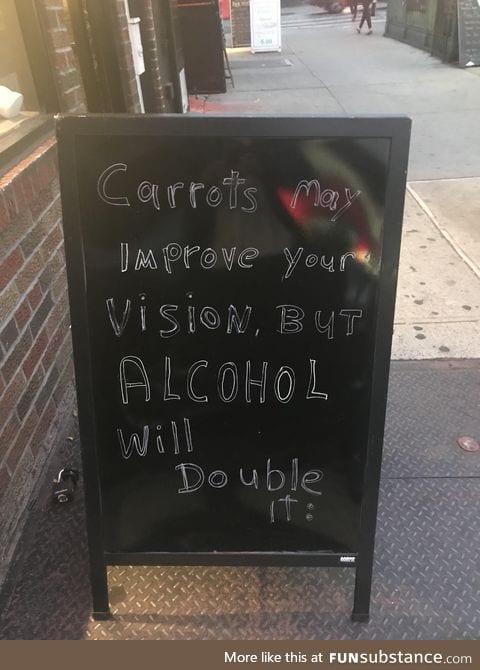 Carrots May
Improve your
Vision, But
ALCOHOL
Will
Double
it:
More like this at FUNsubstance.com